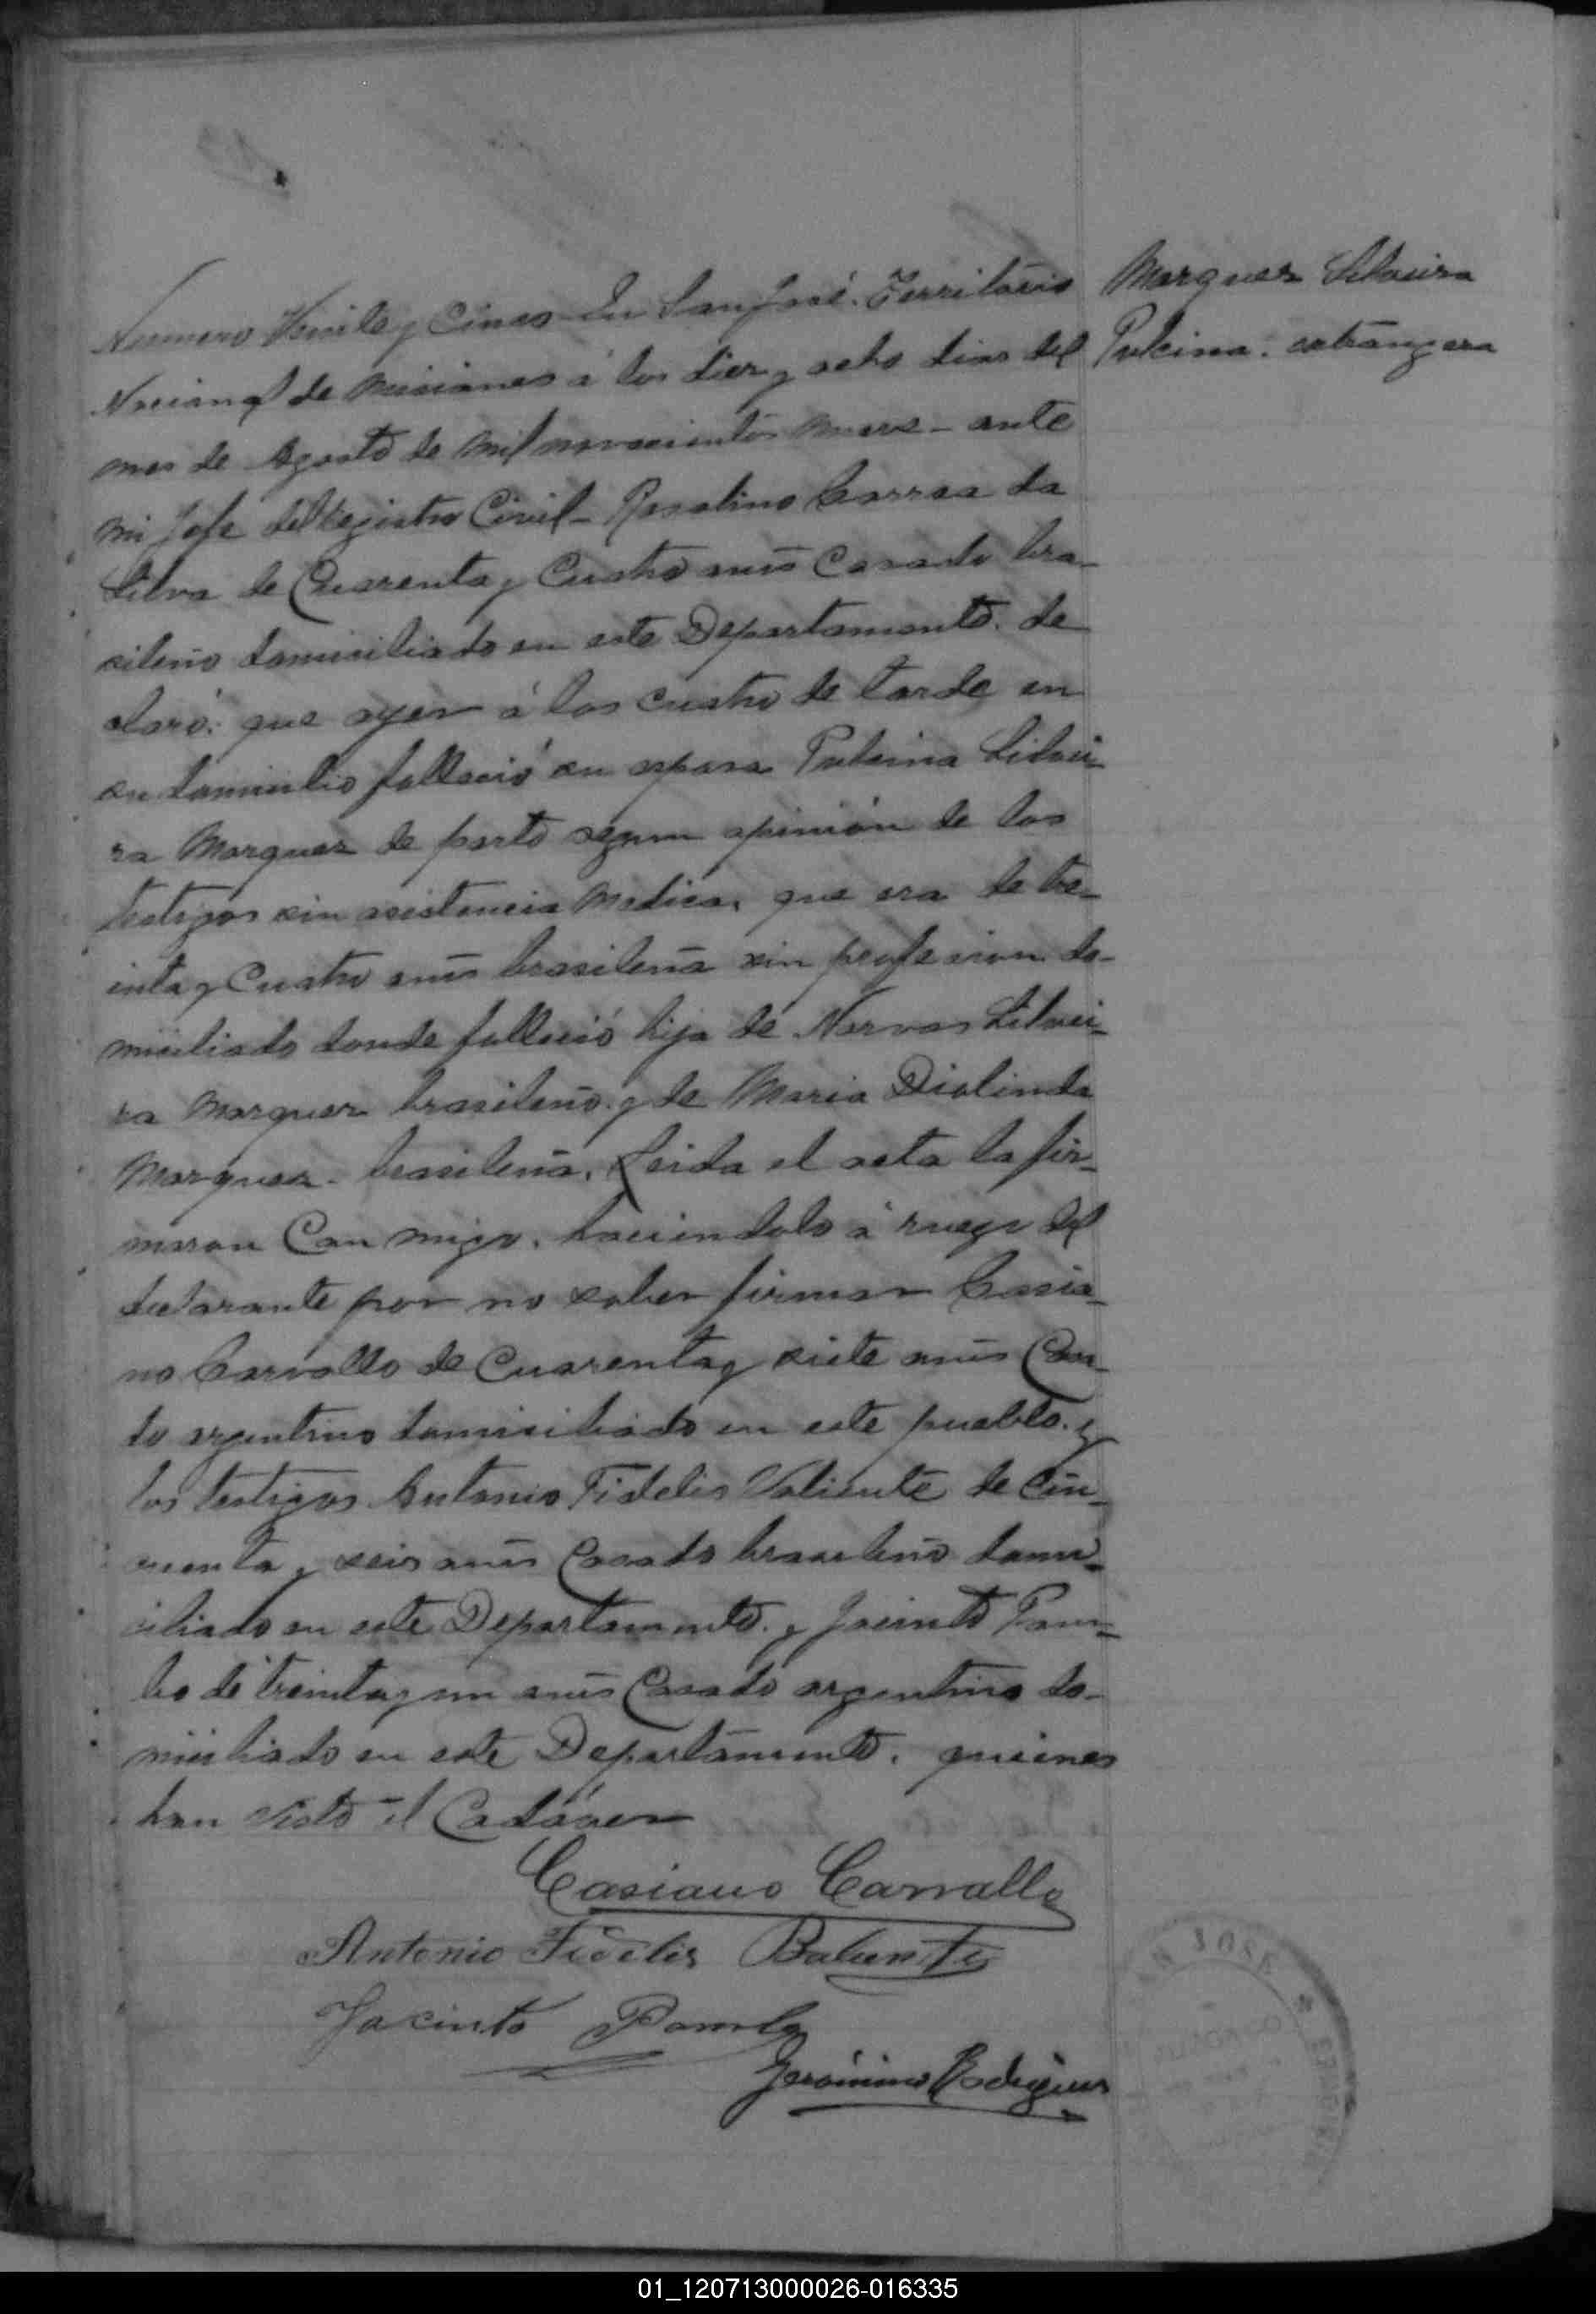 Marquez Silveira
Pulcina. extrangera
Numero Veinte y Cinco En San José. Territorio
Nacional de Misiones á los diez y ocho dias del
mes de Agosto de mil novecientos nueve - ante
mi Jefe del Registro Civil - Rosalino Correa da
Silva de Cuarenta y Cuatro años Casado bra-
sileño domiciliado en este Departamento. de
claró: que ayer á las cuatro de tarde en
su domicilio falleció su esposa Pulcina Silvei-
ra Marquez de parto segun opinión de los
testigos sin asistencia medica, que era de tre-
inta y Cuatro años brasileña sin profesion do-
miciliado donde falleció hija de Narvas Silvei-
ra Marquez brasileño. y de Maria Diolinda
Marquez - brasileña. Leida el acta la fir-
maron Con migo. haciendolo á ruego del
declarante por no saber firmar Casia-
no Carvallo de Cuarenta y siete años Casa-
do argentino domiciliado en este pueblo. y
los testigos Antonio Fidelis Valiente de Cin-
cuenta y seis años Casado brasileño domi-
ciliado en este Departamento. y Jacinto
de treinta y un años Casado argentino do-
miciliado en este Departamento. quienes
han visto el Cadáver
Casiano Carvallo
Antonio Fidelis Baliente
Jacinto
Gerónimo Rodriguez
SAN JOSE
01_120713000026-016335